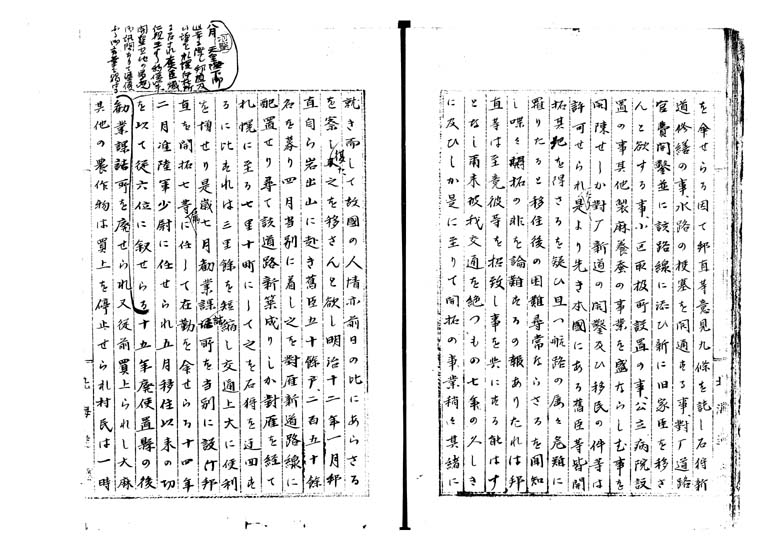 を余せらる因て邦直等意見九條を託し石狩新
道修繕の事水路の梗塞を開通する事對厂道路
官費開鑿並に該路線に添ひ新に旧家臣を移さ
んと欲する事小区取扱所設置の事公立病院設
置の事其他製麻養蚕の事業を盛ならしむ事を
開陳せしか對厂新道の開鑿及ひ移民の件等は
許可せられたり是より先き本国にある舊臣等皆開
拓其地を得さるを疑ひ且つ航路の屡々危難に
罹りたると移住後の困難尋常ならさるを聞知
し喋々開拓の非を論難するの報ありたれは邦
直等は至竟彼等を招致し事を與にする能はす
となし爾来被我交通を絶つもの七年の久しき
に及ひしか是に至りて開拓の事業稍々其緒に
就き而して故国の人情亦前日の比にあらさる
を察し復た之を移さんと欲し明治十二年一月邦
直自ら岩出山に赴き舊臣五十餘戸二百五十餘
名を募り四月当別に着し之を對雁新道路線に
配置せり尋て該道路新築成りしか對雁を経て
札幌に至る七里十町にして之を石狩を迂回す
るに比すれは三里餘を短縮し交通上大に便利
を増せり是歳七月勧業課派出所を当別に設け邦
直を開拓七等属に任して在勤を余せらる十四年
二月准陸軍少尉に任せられ五月移住以来の功
を以て従六位に叙せらる十五年廃使置縣の後
勧業課諸所を廃せられ又従前買上られし大麻
其他の農作物は買上を停止せられ村民は一時
八月
天皇陛下